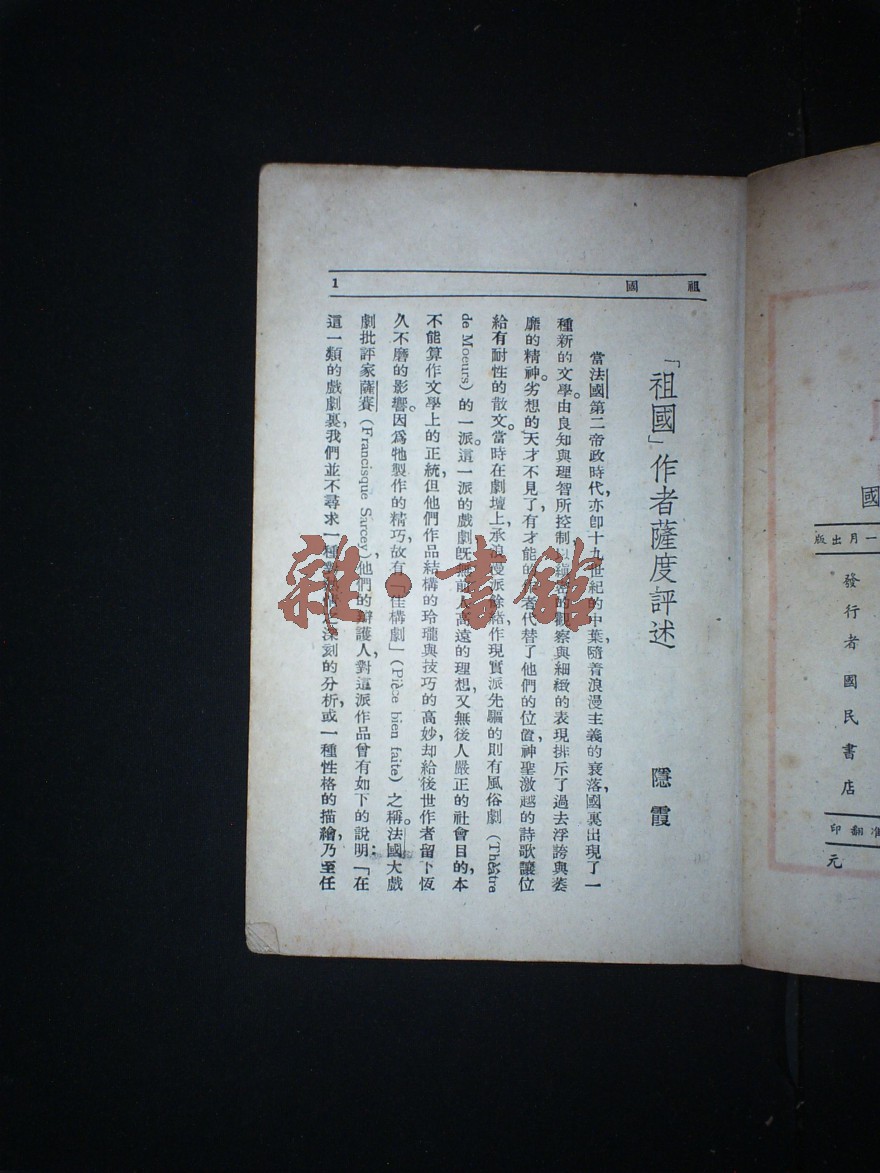 國
一月出版
發行者國民書店
准翻印
元
祖國
1
「祖國」作者薩度評述
隱霞
當法國第二帝政時代，亦卽十九世紀的中葉，隨着浪漫主義的衰落，國裏出現了一
種新的文學。由良知與理智所控制，以 密的觀察與細緻的表現排斥了過去浮誇與萎
靡的精神。劣想的天才不見了，有才能的 者代替了他們的位置，神聖激越的詩歌讓位
給有耐性的散文。當時在劇壇上，承浪漫派餘緒作現實派先驅的則有風俗劇（Théâtre
de Moeurs）的一派。這一派的戲劇旣無前人高遠的理想，又無後人嚴正的社會目的，本
不能算作文學上的正統，但他們作品結構的玲瓏與技巧的高妙，却給後世作者留下恆
久不磨的影響。因爲牠製作的精巧，故有「佳構劇」（Pièce bien faite）之稱。法國大戲
劇批評家薩賽（Francisque Sarcey）他們的辯護人，對這派作品曾有如下的說明：「在
這一類的戲劇裏，我們並不尋求一種 深刻的分析，或一種性格的描繪，乃至任
雜·書館